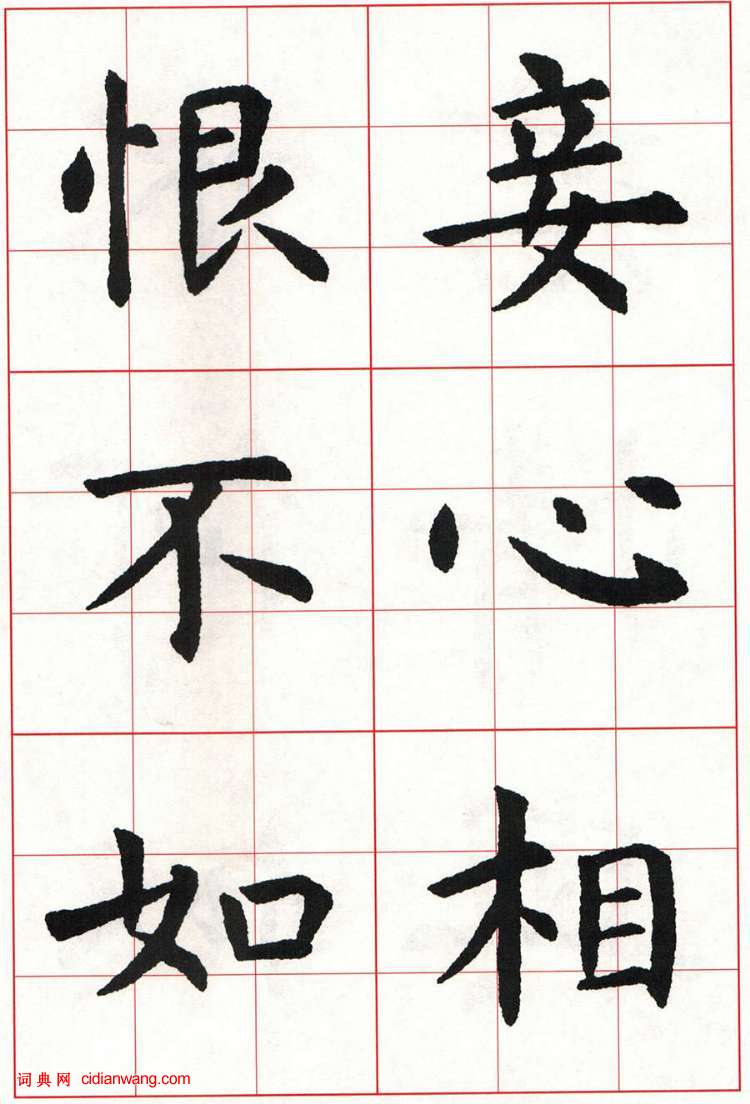 妾心相
恨不如
词典网 cidianwang.com